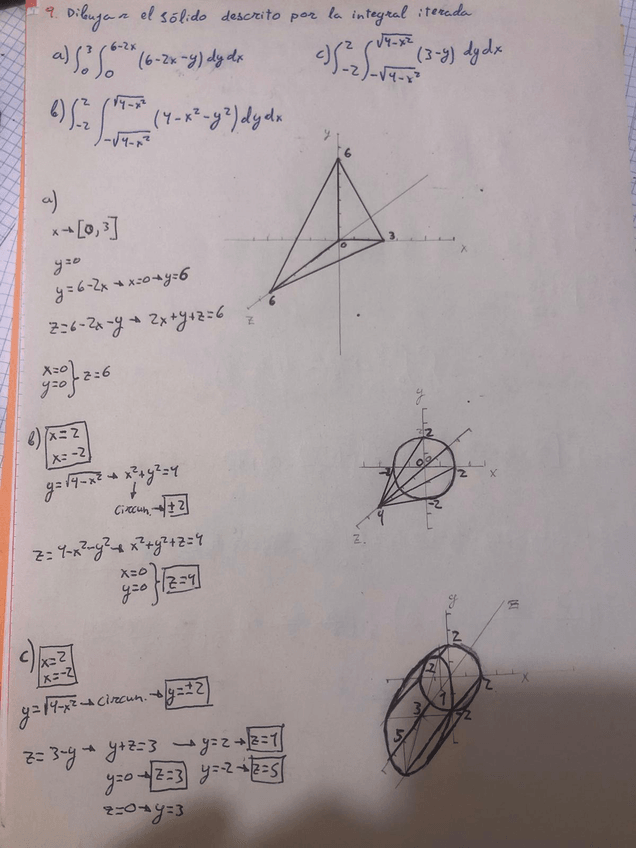 9. Dibujar el sólido descrito por la integral iterada
a) ∫₀³ ∫₀^(6-2x) (6-2x-y) dy dx
c) ∫₋₂² ∫_(-√(4-x²))^(√(4-x²)) (3-y) dy dx
b) ∫₋₂² ∫_(-√(4-x²))^(√(4-x²)) (4-x²-y²) dy dx
a)
x → [0, 3]
y=0
y = 6-2x → x=0 → y=6
z = 6-2x-y → 2x+y+z=6
x=0
y=0 } z=6
y
6
0
3
x
6
z
b) x=2
x=-2
y=√(4-x²) → x²+y²=4
↓
circun. → ±2
z = 4-x²-y² → x²+y²+z=4
x=0
y=0 } z=4
y
2
-2
0
2
x
-2
4
z
c) x=2
x=-2
y=√(4-x²) → circun. → y=±2
z = 3-y → y+z=3 → y=2 → z=1
y=0 → z=3 y=-2 → z=5
z=0 → y=3
y
z
2
-2
x
2
1
-2
3
5